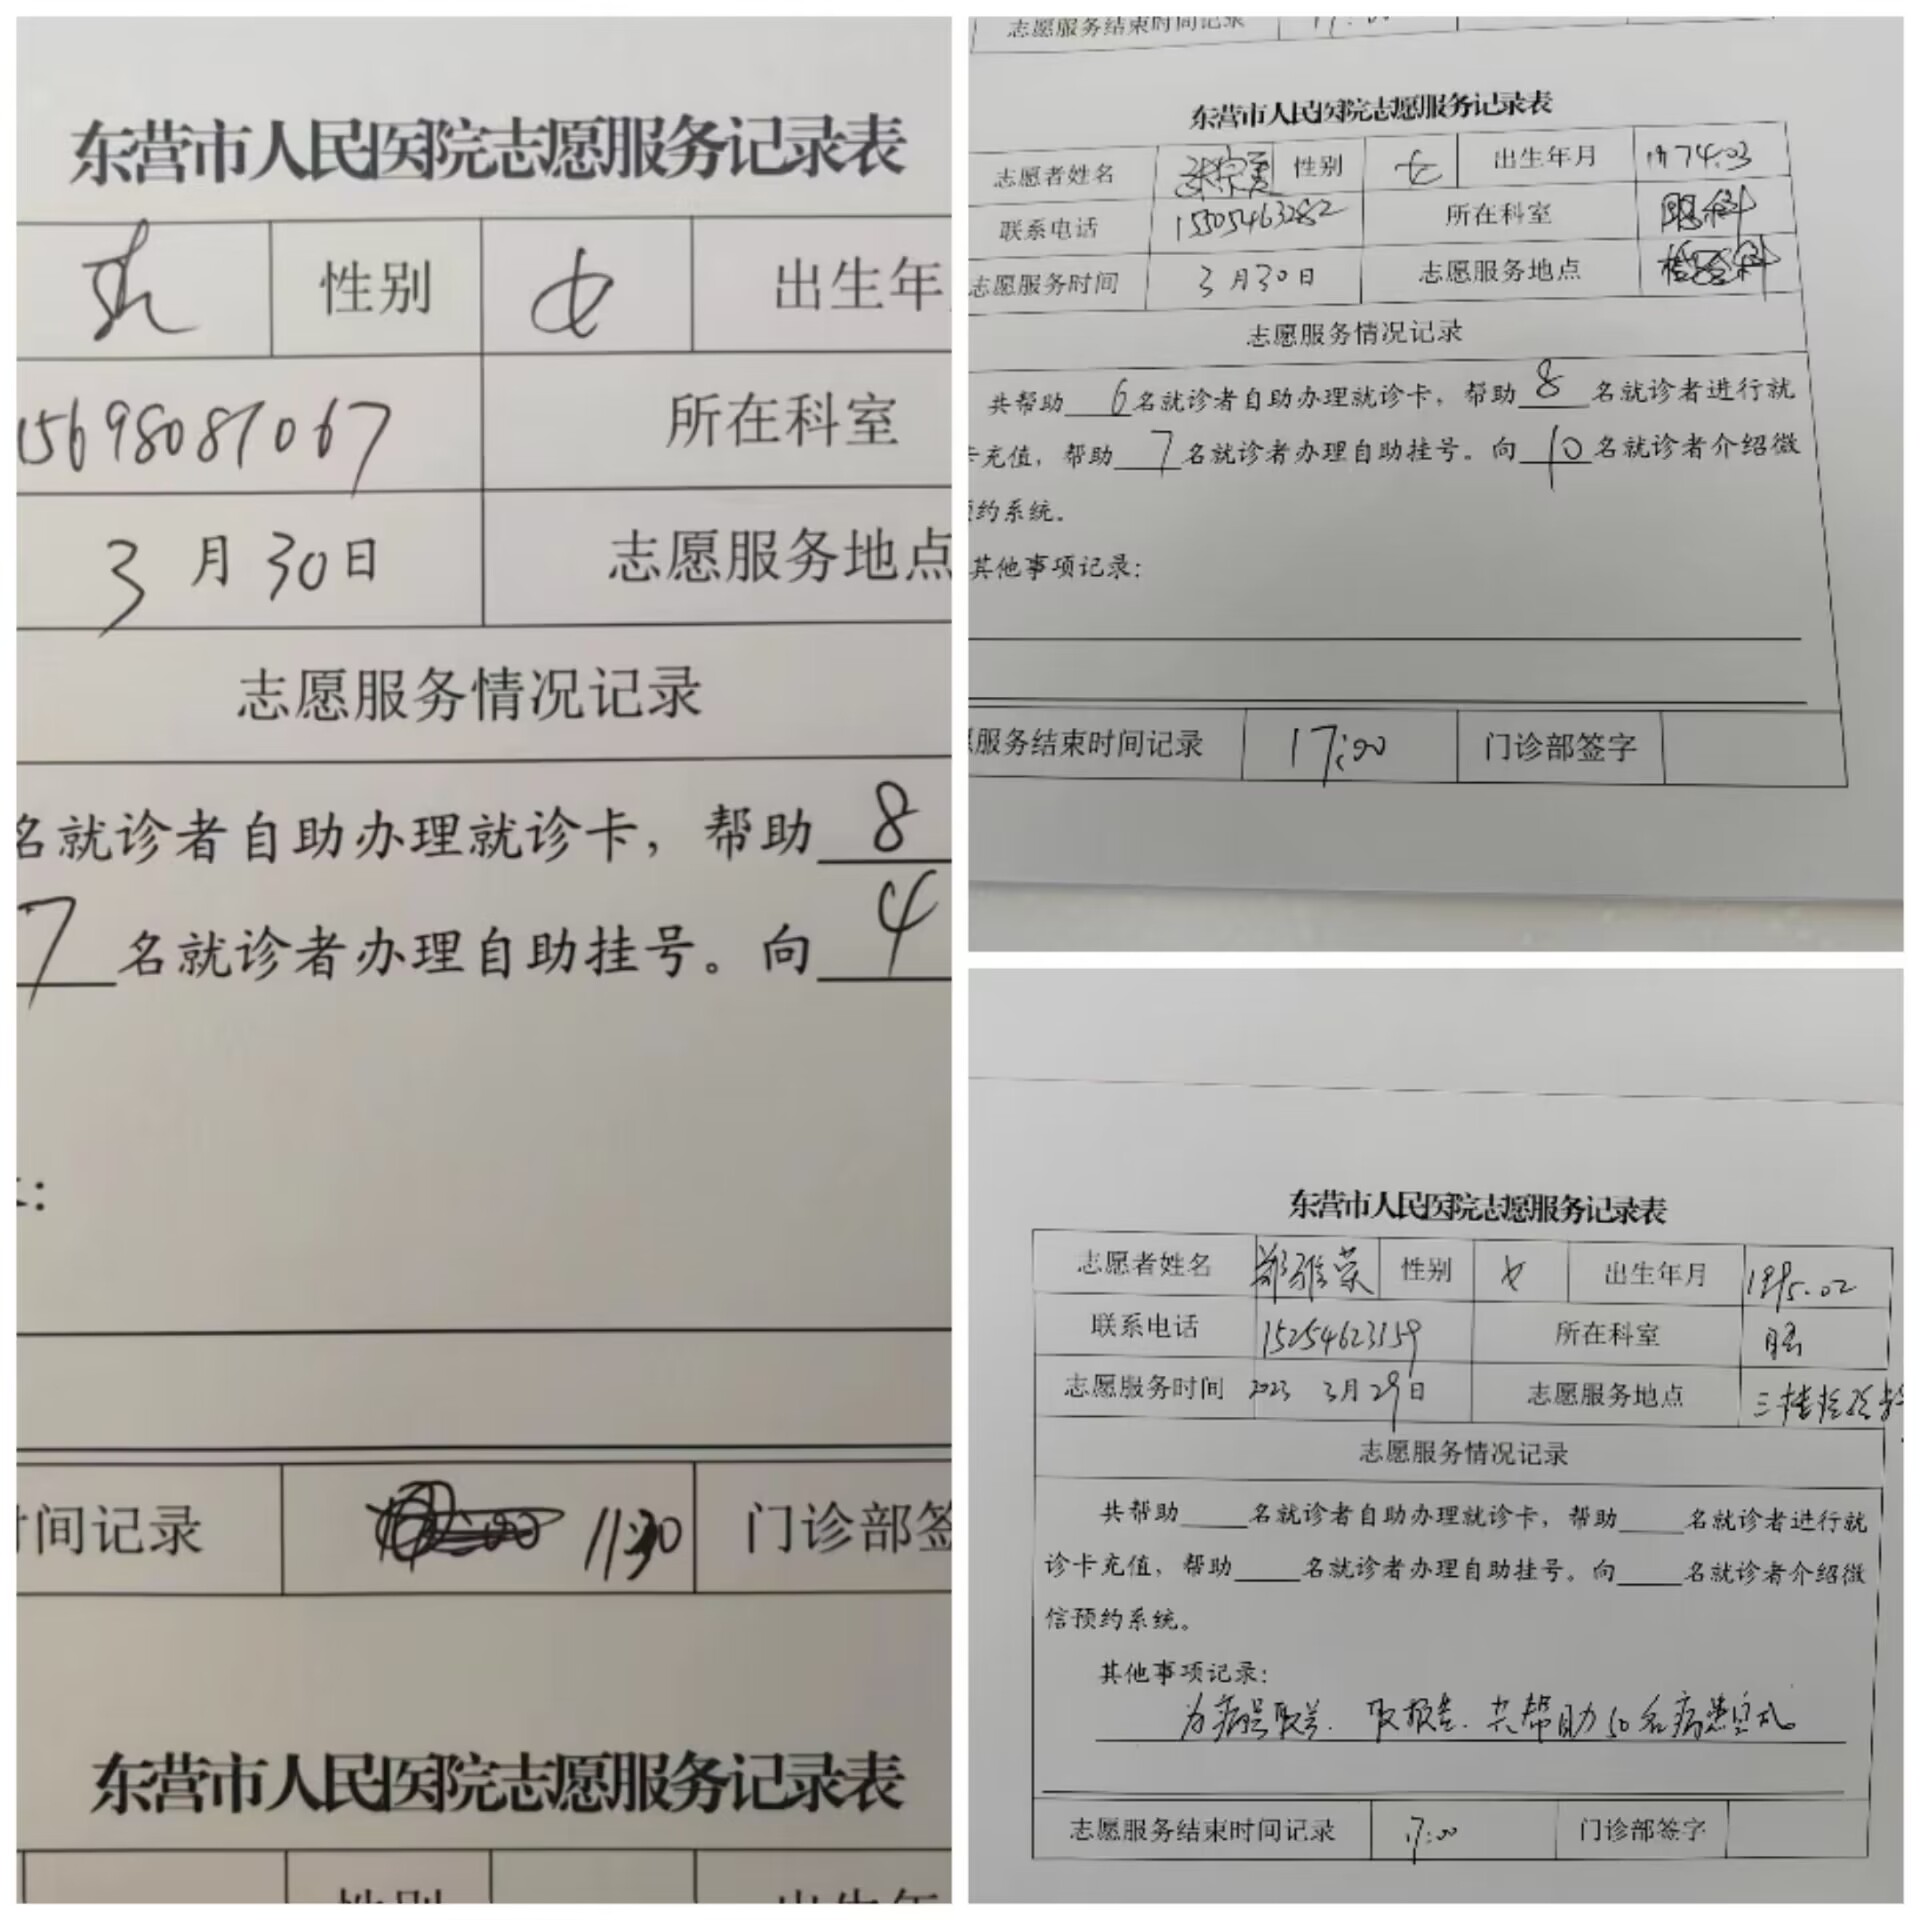 东营市人民医院志愿服务记录表
性别 女 出生年
15698081067 所在科室
3月30日 志愿服务地点
志愿服务情况记录
名就诊者自助办理就诊卡，帮助8
7名就诊者办理自助挂号。向4
：
间记录 11:30 门诊部签
东营市人民医院志愿服务记录表
性别 出生年
志愿服务结束时间记录
东营市人民医院志愿服务记录表
志愿者姓名 性别 女 出生年月 1974.03
联系电话 15505463282 所在科室 眼科
志愿服务时间 3月30日 志愿服务地点 检验科
志愿服务情况记录
共帮助6名就诊者自助办理就诊卡，帮助8名就诊者进行就
卡充值，帮助7名就诊者办理自助挂号。向10名就诊者介绍微
预约系统。
其他事项记录：
愿服务结束时间记录 17:00 门诊部签字
东营市人民医院志愿服务记录表
志愿者姓名 郑雅荣 性别 女 出生年月 1995.02
联系电话 15254623159 所在科室
志愿服务时间 2023 3月29日 志愿服务地点 三楼检验科
志愿服务情况记录
共帮助____名就诊者自助办理就诊卡，帮助____名就诊者进行就
诊卡充值，帮助____名就诊者办理自助挂号。向____名就诊者介绍微
信预约系统。
其他事项记录：
为病号取单、取报告、共帮助50名病患
志愿服务结束时间记录 17:00 门诊部签字